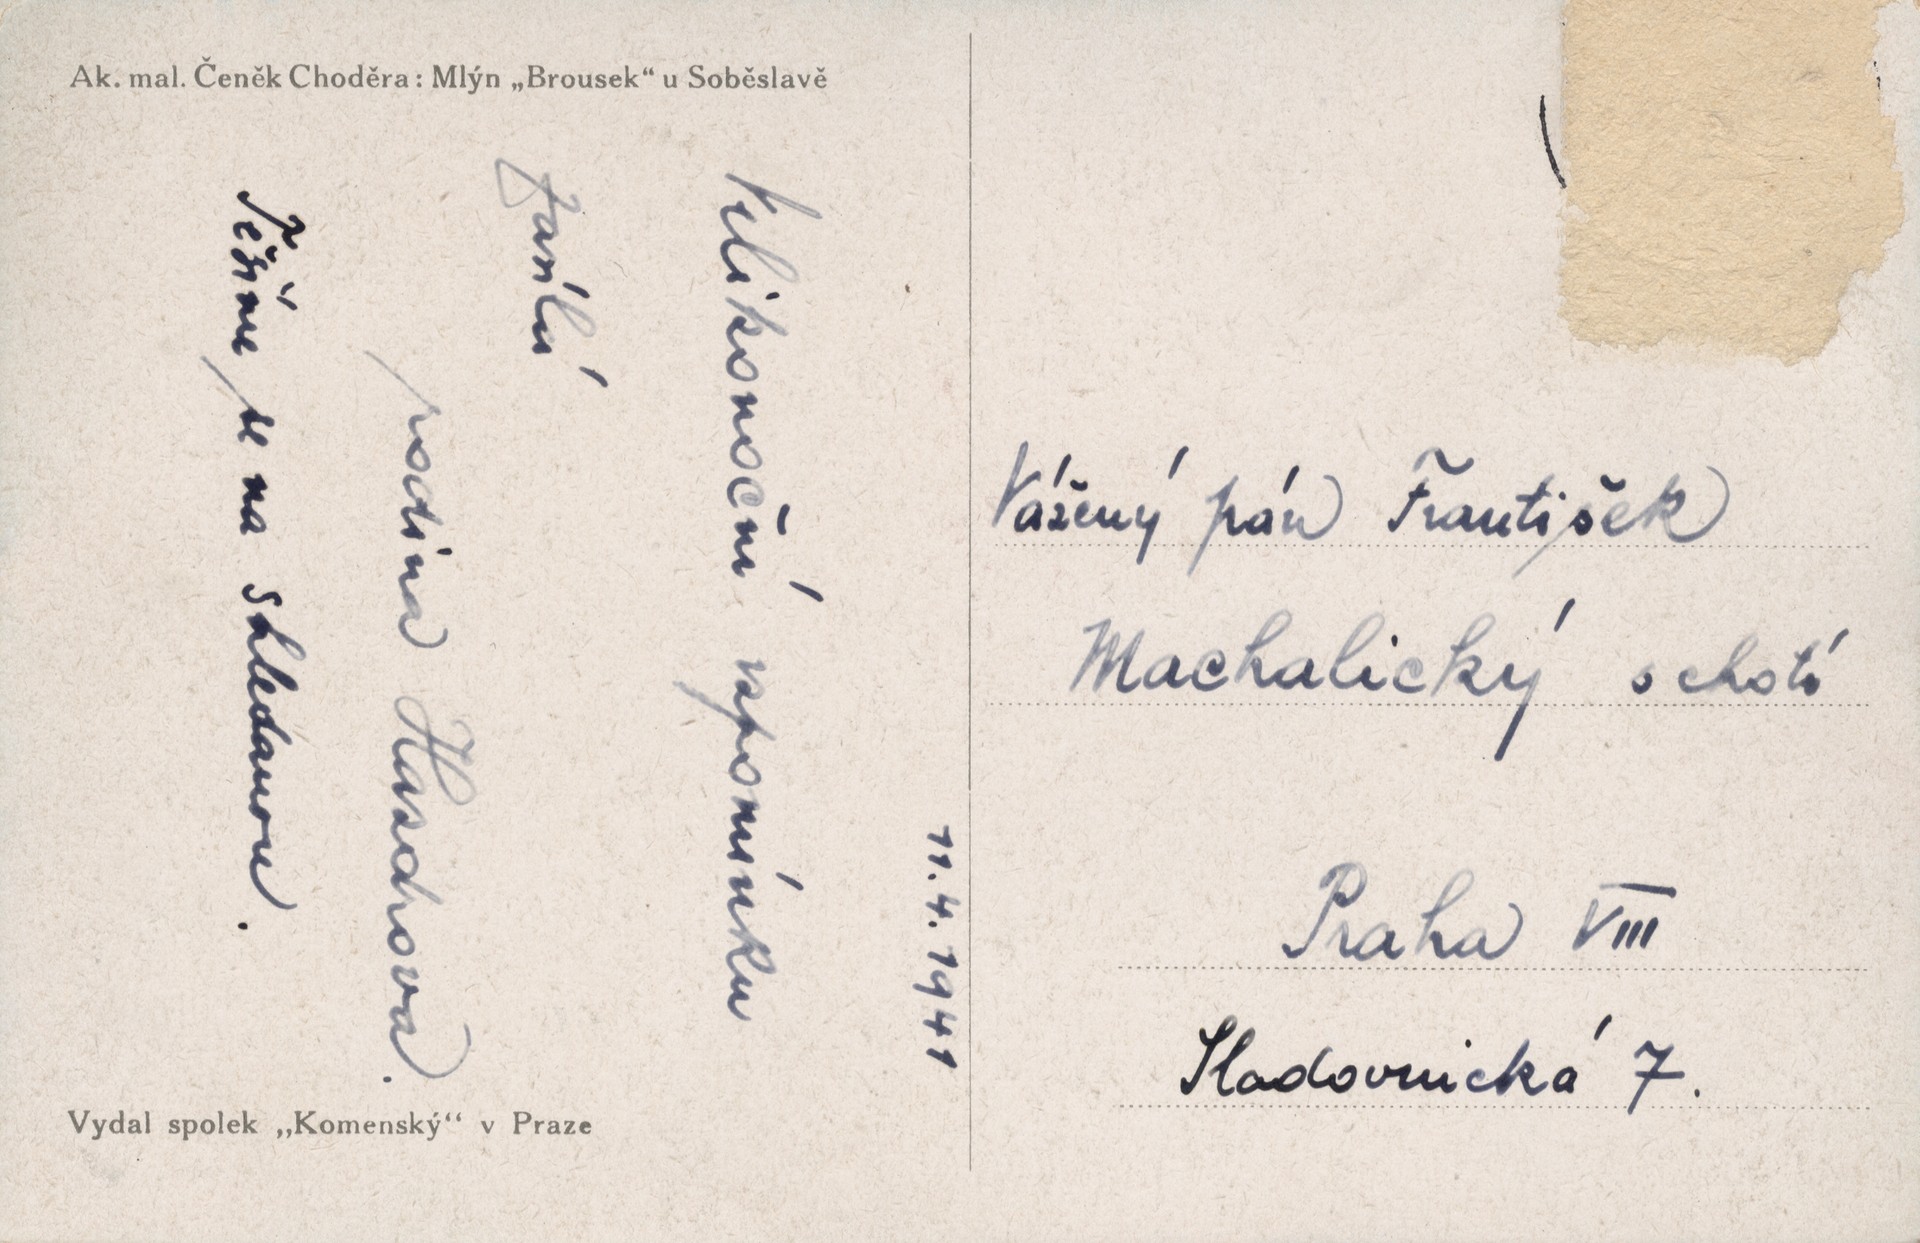 Ak. mal. Čeněk Choděra: Mlýn „Brousek“ u Soběslavě
11. 4. 1941
Velikonoční vzpomínku
zasílá
rodina Hasdrova.
Těšíme se na shledanou.
Vydal spolek „Komenský“ v Praze
Vážený pán František
Machalický s chotí
Praha VIII
Sladovnická 7.